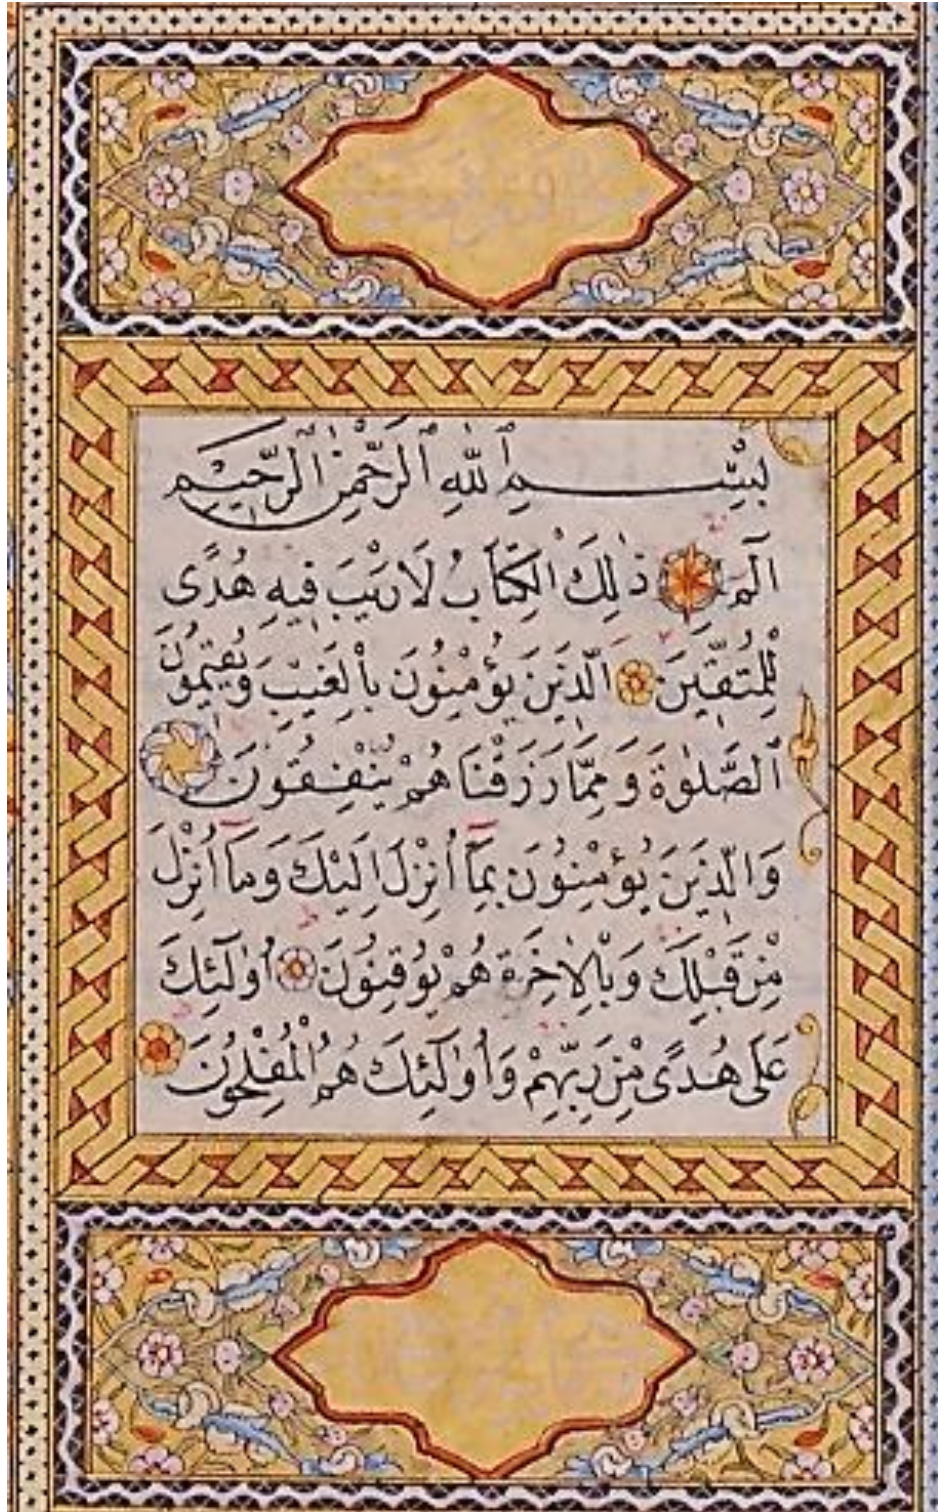 بِسْمِ ٱللّٰهِ ٱلرَّحْمٰنِ ٱلرَّحِيمِ
الٓمٓ ذٰلِكَ الْكِتَابُ لَا رَيْبَ فِيهِ هُدًى
لِلْمُتَّقِينَ الَّذِينَ يُؤْمِنُونَ بِالْغَيْبِ وَيُقِيمُونَ
ٱلصَّلٰوةَ وَمِمَّا رَزَقْنَا هُمْ يُنْفِقُونَ
وَالَّذِينَ يُؤْمِنُونَ بِمَٓا أُنْزِلَ اِلَيْكَ وَمَٓا أُنْزِلَ
مِنْ قَبْلِكَ وَبِالْاٰخِرَةِ هُمْ يُوقِنُونَ اُولٰٓئِكَ
عَلٰى هُدًى مِنْ رَبِّهِمْ وَاُولٰٓئِكَ هُمُ الْمُفْلِحُونَ